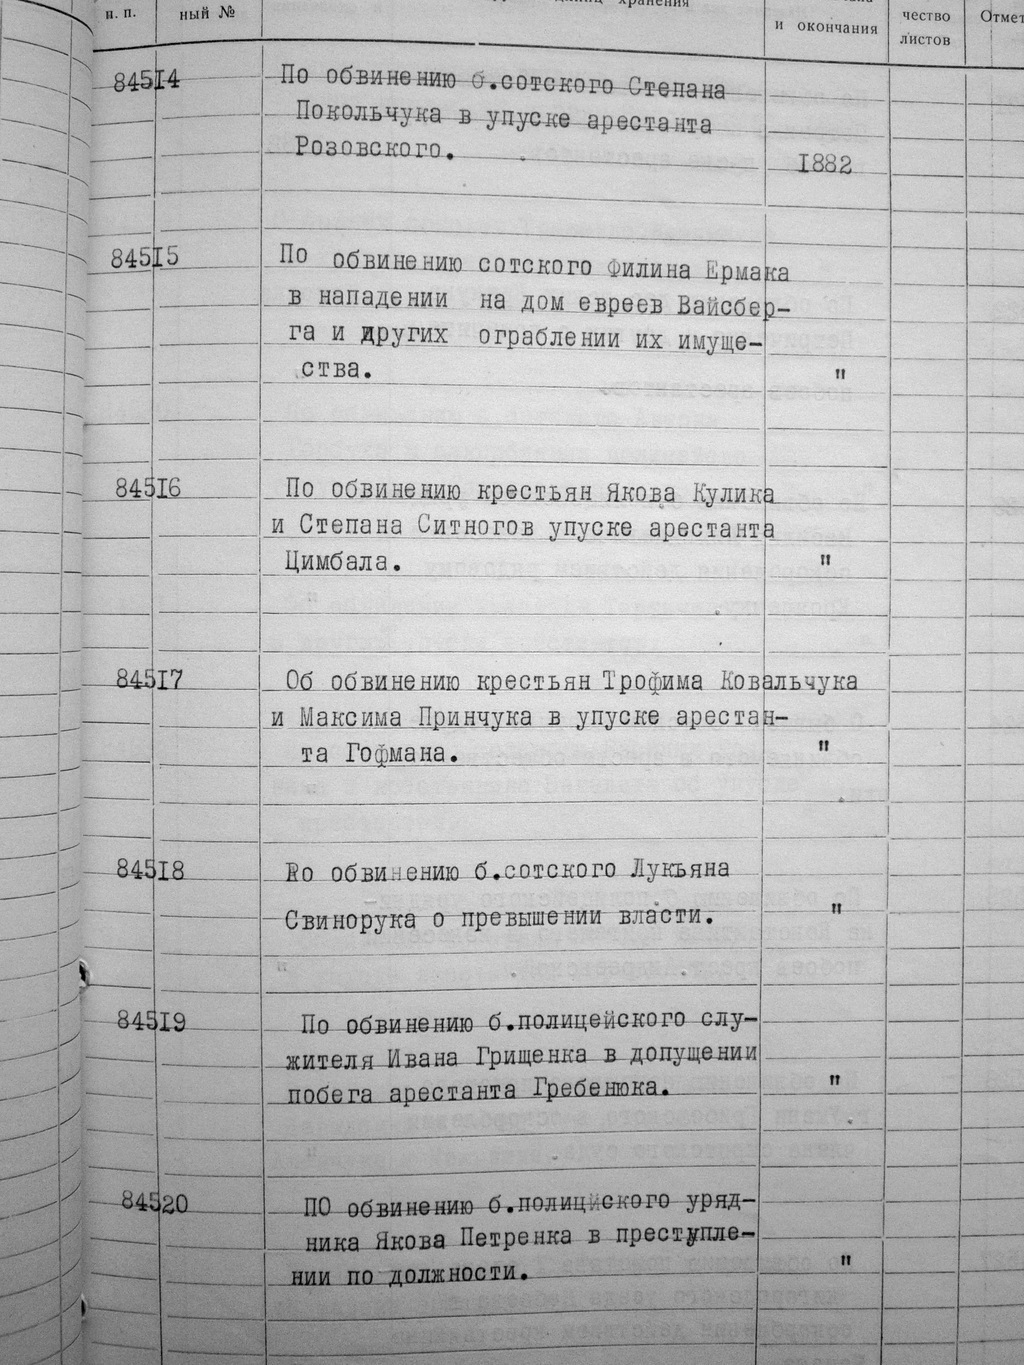 п. п.
ный №
хранения
и окончания
чество
листов
Отмет
84514
По обвинению б.сотского Степана
Покольчука в упуске арестанта
Розовского.
1882
84515
По обвинению сотского Филина Ермака
в нападении на дом евреев Вайсбер-
га и других ограблении их имуще-
ства.
"
84516
По обвинению крестьян Якова Кулика
и Степана Ситногов упуске арестанта
Цимбала.
"
84517
Об обвинению крестьян Трофима Ковальчука
и Максима Принчука в упуске арестан-
та Гофмана.
"
84518
По обвинению б.сотского Лукьяна
Свинорука о превышении власти.
"
84519
По обвинению б.полицейского слу-
жителя Ивана Грищенка в допущении
побега арестанта Гребенюка.
"
84520
ПО обвинению б.полицйского уряд-
ника Якова Петренка в преступле-
нии по должности.
"